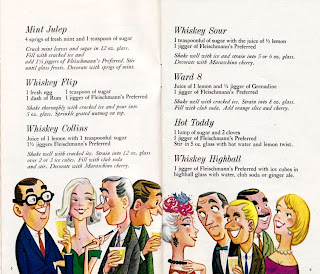 Mint Julep
4 sprigs of fresh mint and 1 teaspoon of sugar
Crack mint leaves and sugar in 12 oz. glass.
Fill with cracked ice and
add 1½ jiggers of Fleischmann's Preferred. Stir
until glass frosts. Decorate with sprigs of mint.
Whiskey Flip
1 fresh egg 1 teaspoon of sugar
1 dash of Rum 1 jigger of Fleischmann's Preferred
Shake thoroughly with cracked ice and pour into
5 oz. glass. Sprinkle grated nutmeg on top.
Whiskey Collins
Juice of 1 lemon with 1 teaspoonful sugar
1½ jiggers Fleischmann's Preferred
Shake well with cracked ice. Strain into 12 oz. glass
over 2 or 3 ice cubes. Fill with club soda
and stir. Decorate with Maraschino cherry.
Whiskey Sour
1 teaspoonful of sugar with the juice of ½ lemon
1 jigger of Fleischmann's Preferred
Shake well with ice and strain into 5 or 6 oz. glass.
Decorate with Maraschino cherry.
Ward 8
Juice of 1 lemon and ½ jigger of Grenadine
1 jigger of Fleischmann's Preferred
Shake well with cracked ice. Strain into 8 oz. glass.
Fill with club soda. Add orange slice and cherry.
Hot Toddy
1 lump of sugar and 2 cloves
1 jigger of Fleischmann's Preferred
Stir in 5 oz. glass with hot water and lemon twist.
Whiskey Highball
1 jigger of Fleischmann's Preferred with ice cubes in
highball glass with water, club soda or ginger ale.